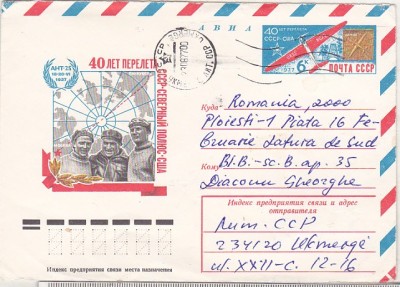 АВИА
40 ЛЕТ ПЕРЕЛЕТУ
СССР-США
1977
6К
ПОЧТА СССР
АНТ-25
1937
40 ЛЕТ ПЕРЕЛЕТУ
СССР-СЕВЕРНЫЙ ПОЛЮС-США
Куда Romania, 2000
Ploiesti-1 Piata 16 Fe-
bruarie Latura de Sud
Bl.B.-sc.B. ap. 35
Кому Diaconu Gheorghe
Индекс предприятия связи и адрес
отправителя
Лит. ССР
234120 Ukmergė
ul. XXII-C. 12-16
Индекс предприятия связи места назначения